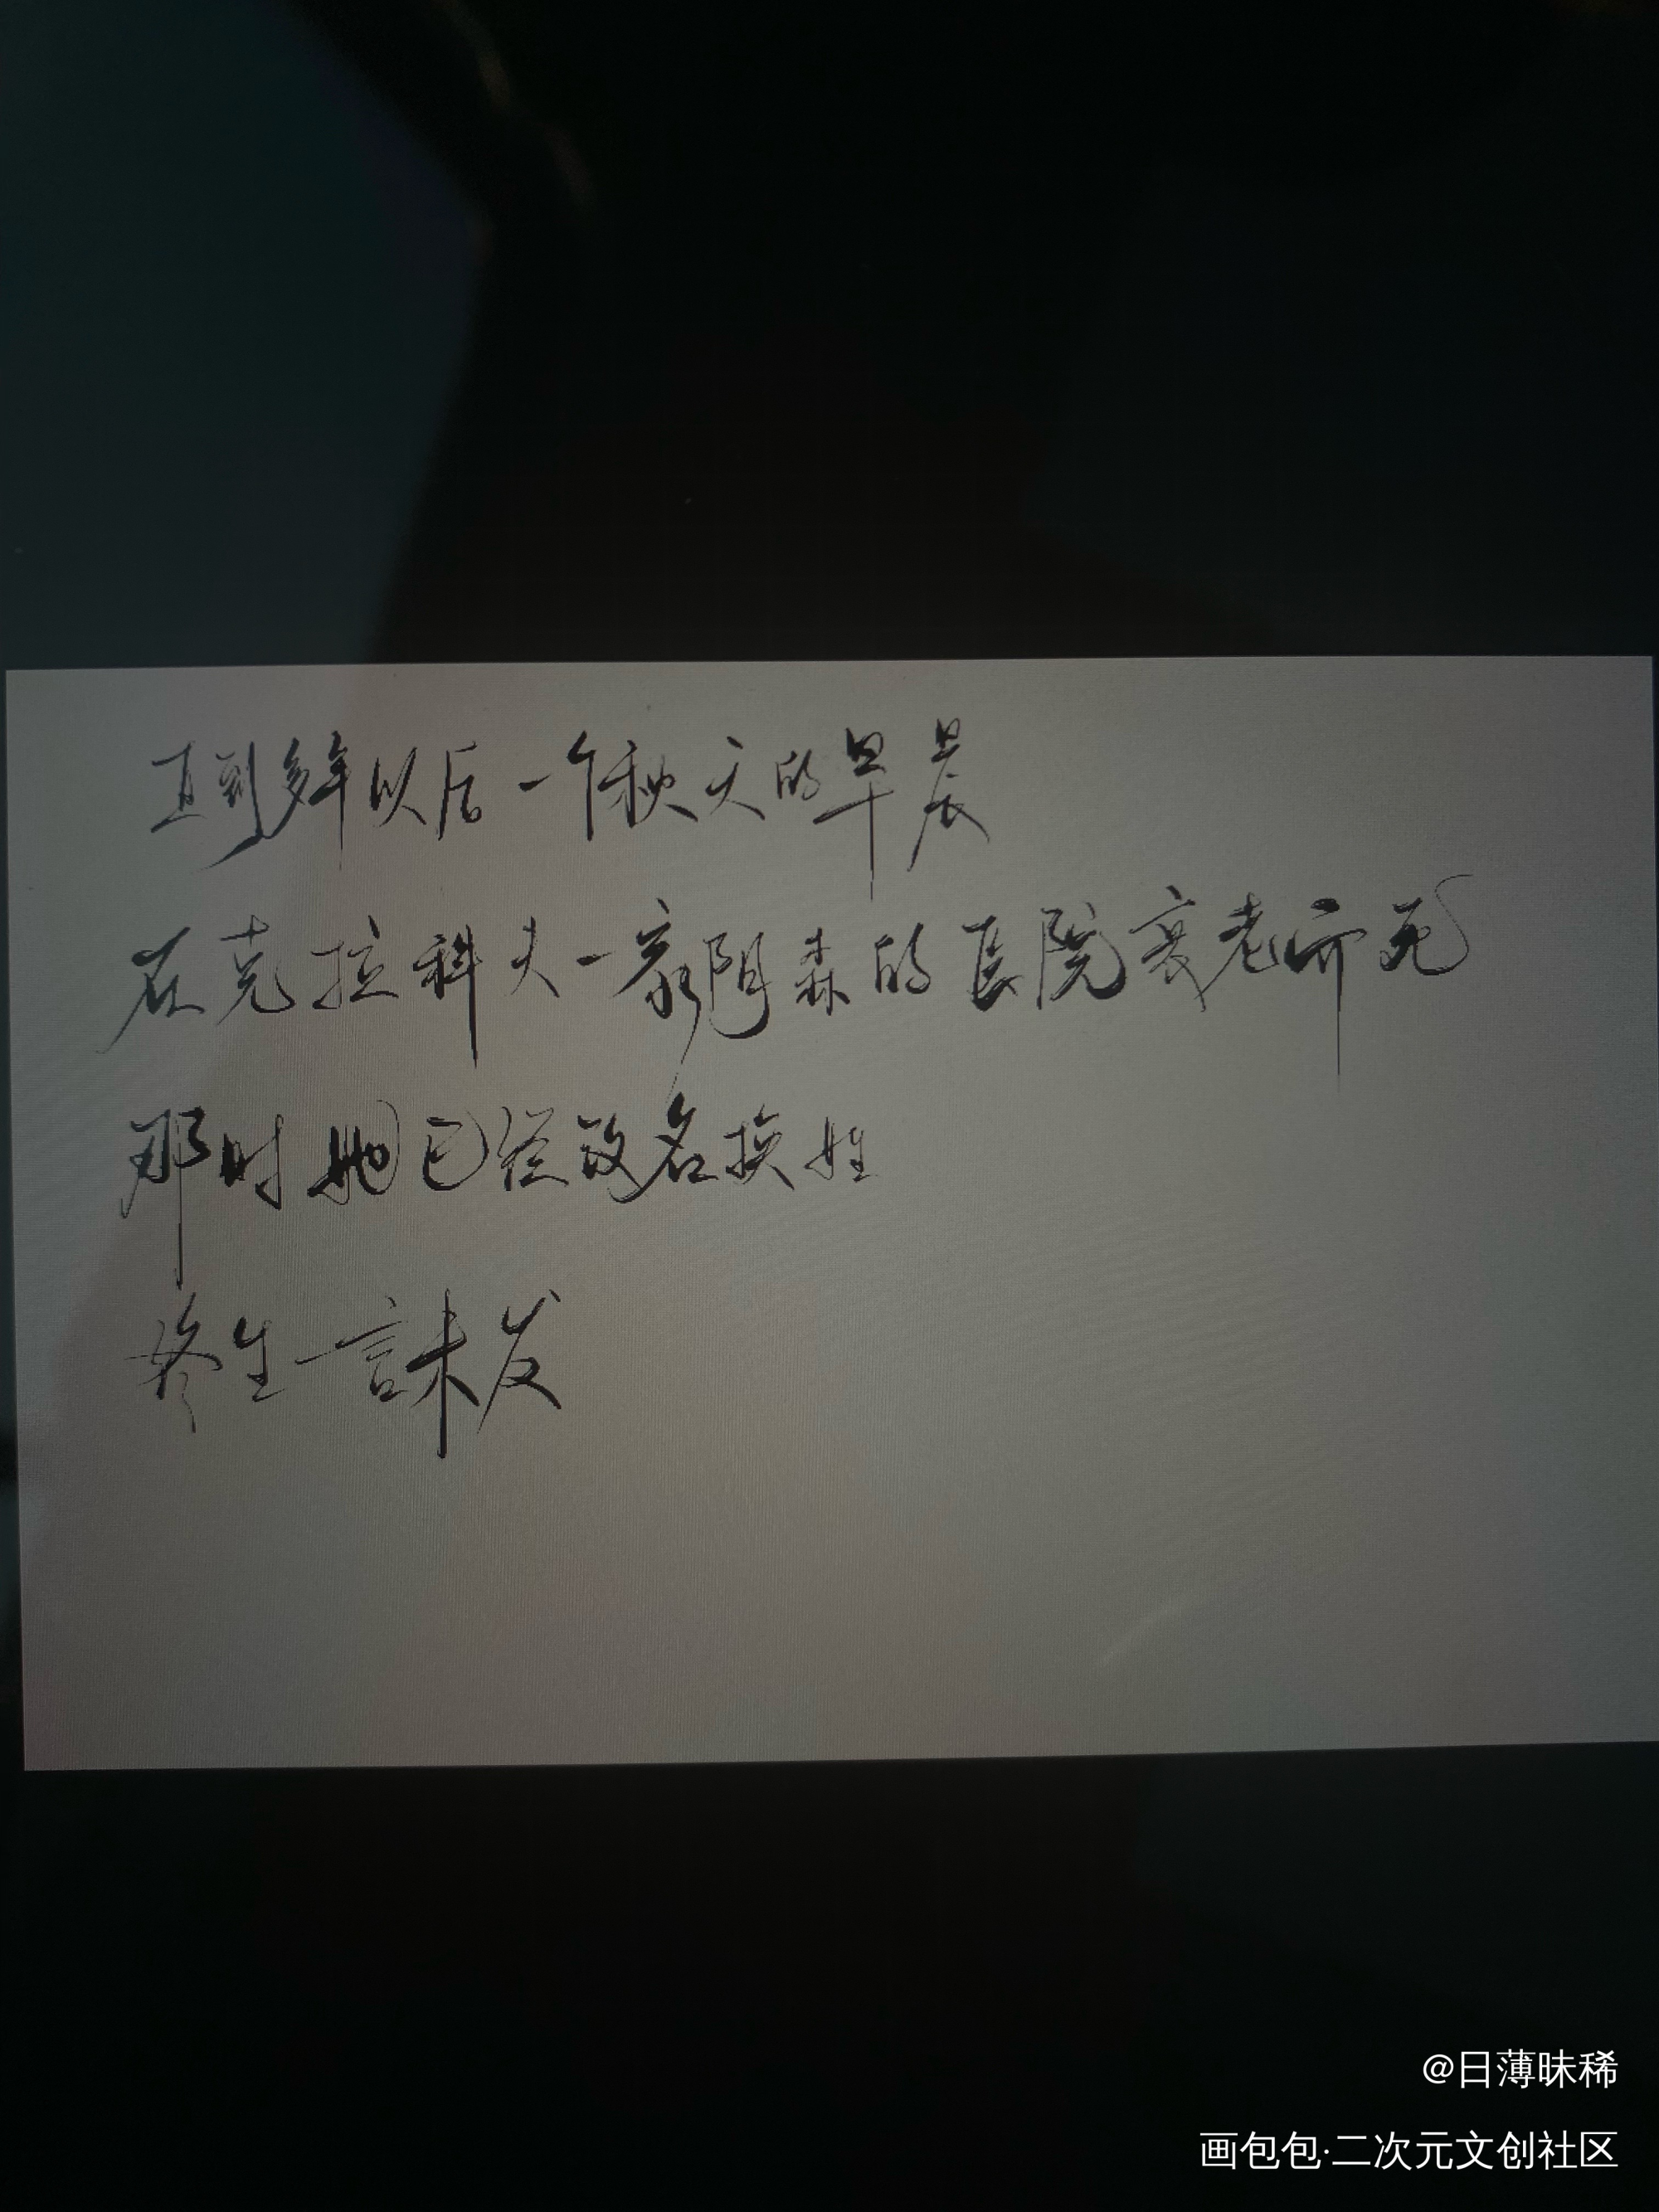 直到多年以后一个秋天的早晨
在克拉科夫一家阴森的医院衰老而死
那时她已经改名换姓
终生一言未发
@日薄昧稀
画包包·二次元文创社区